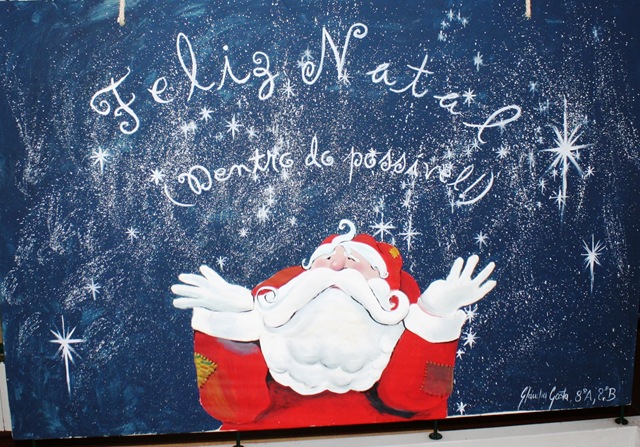 Feliz Natal
(Dentro do possível!)
Cláudia Costa 8ºA, 8ºB